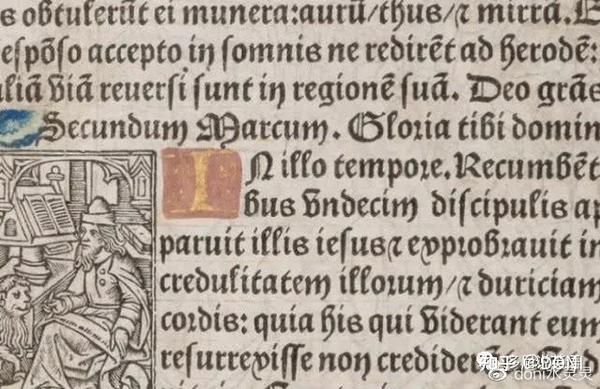 s obtulerūt ei munera: aurū/thus/⁊ mirrā. E
espōso accepto in somnis ne redirēt ad herodē:
liā viā reuersi sunt in regionē suā. Deo grās
Secundum Marcum. Gloria tibi domin
IN illo tempore. Recumbēt
bus vndecim discipulis ap
paruit illis iesus ⁊ exprobrauit in
credulitatem illorum/⁊ duriciam
cordis: quia his qui viderant eum
resurrexisse non crediderūt